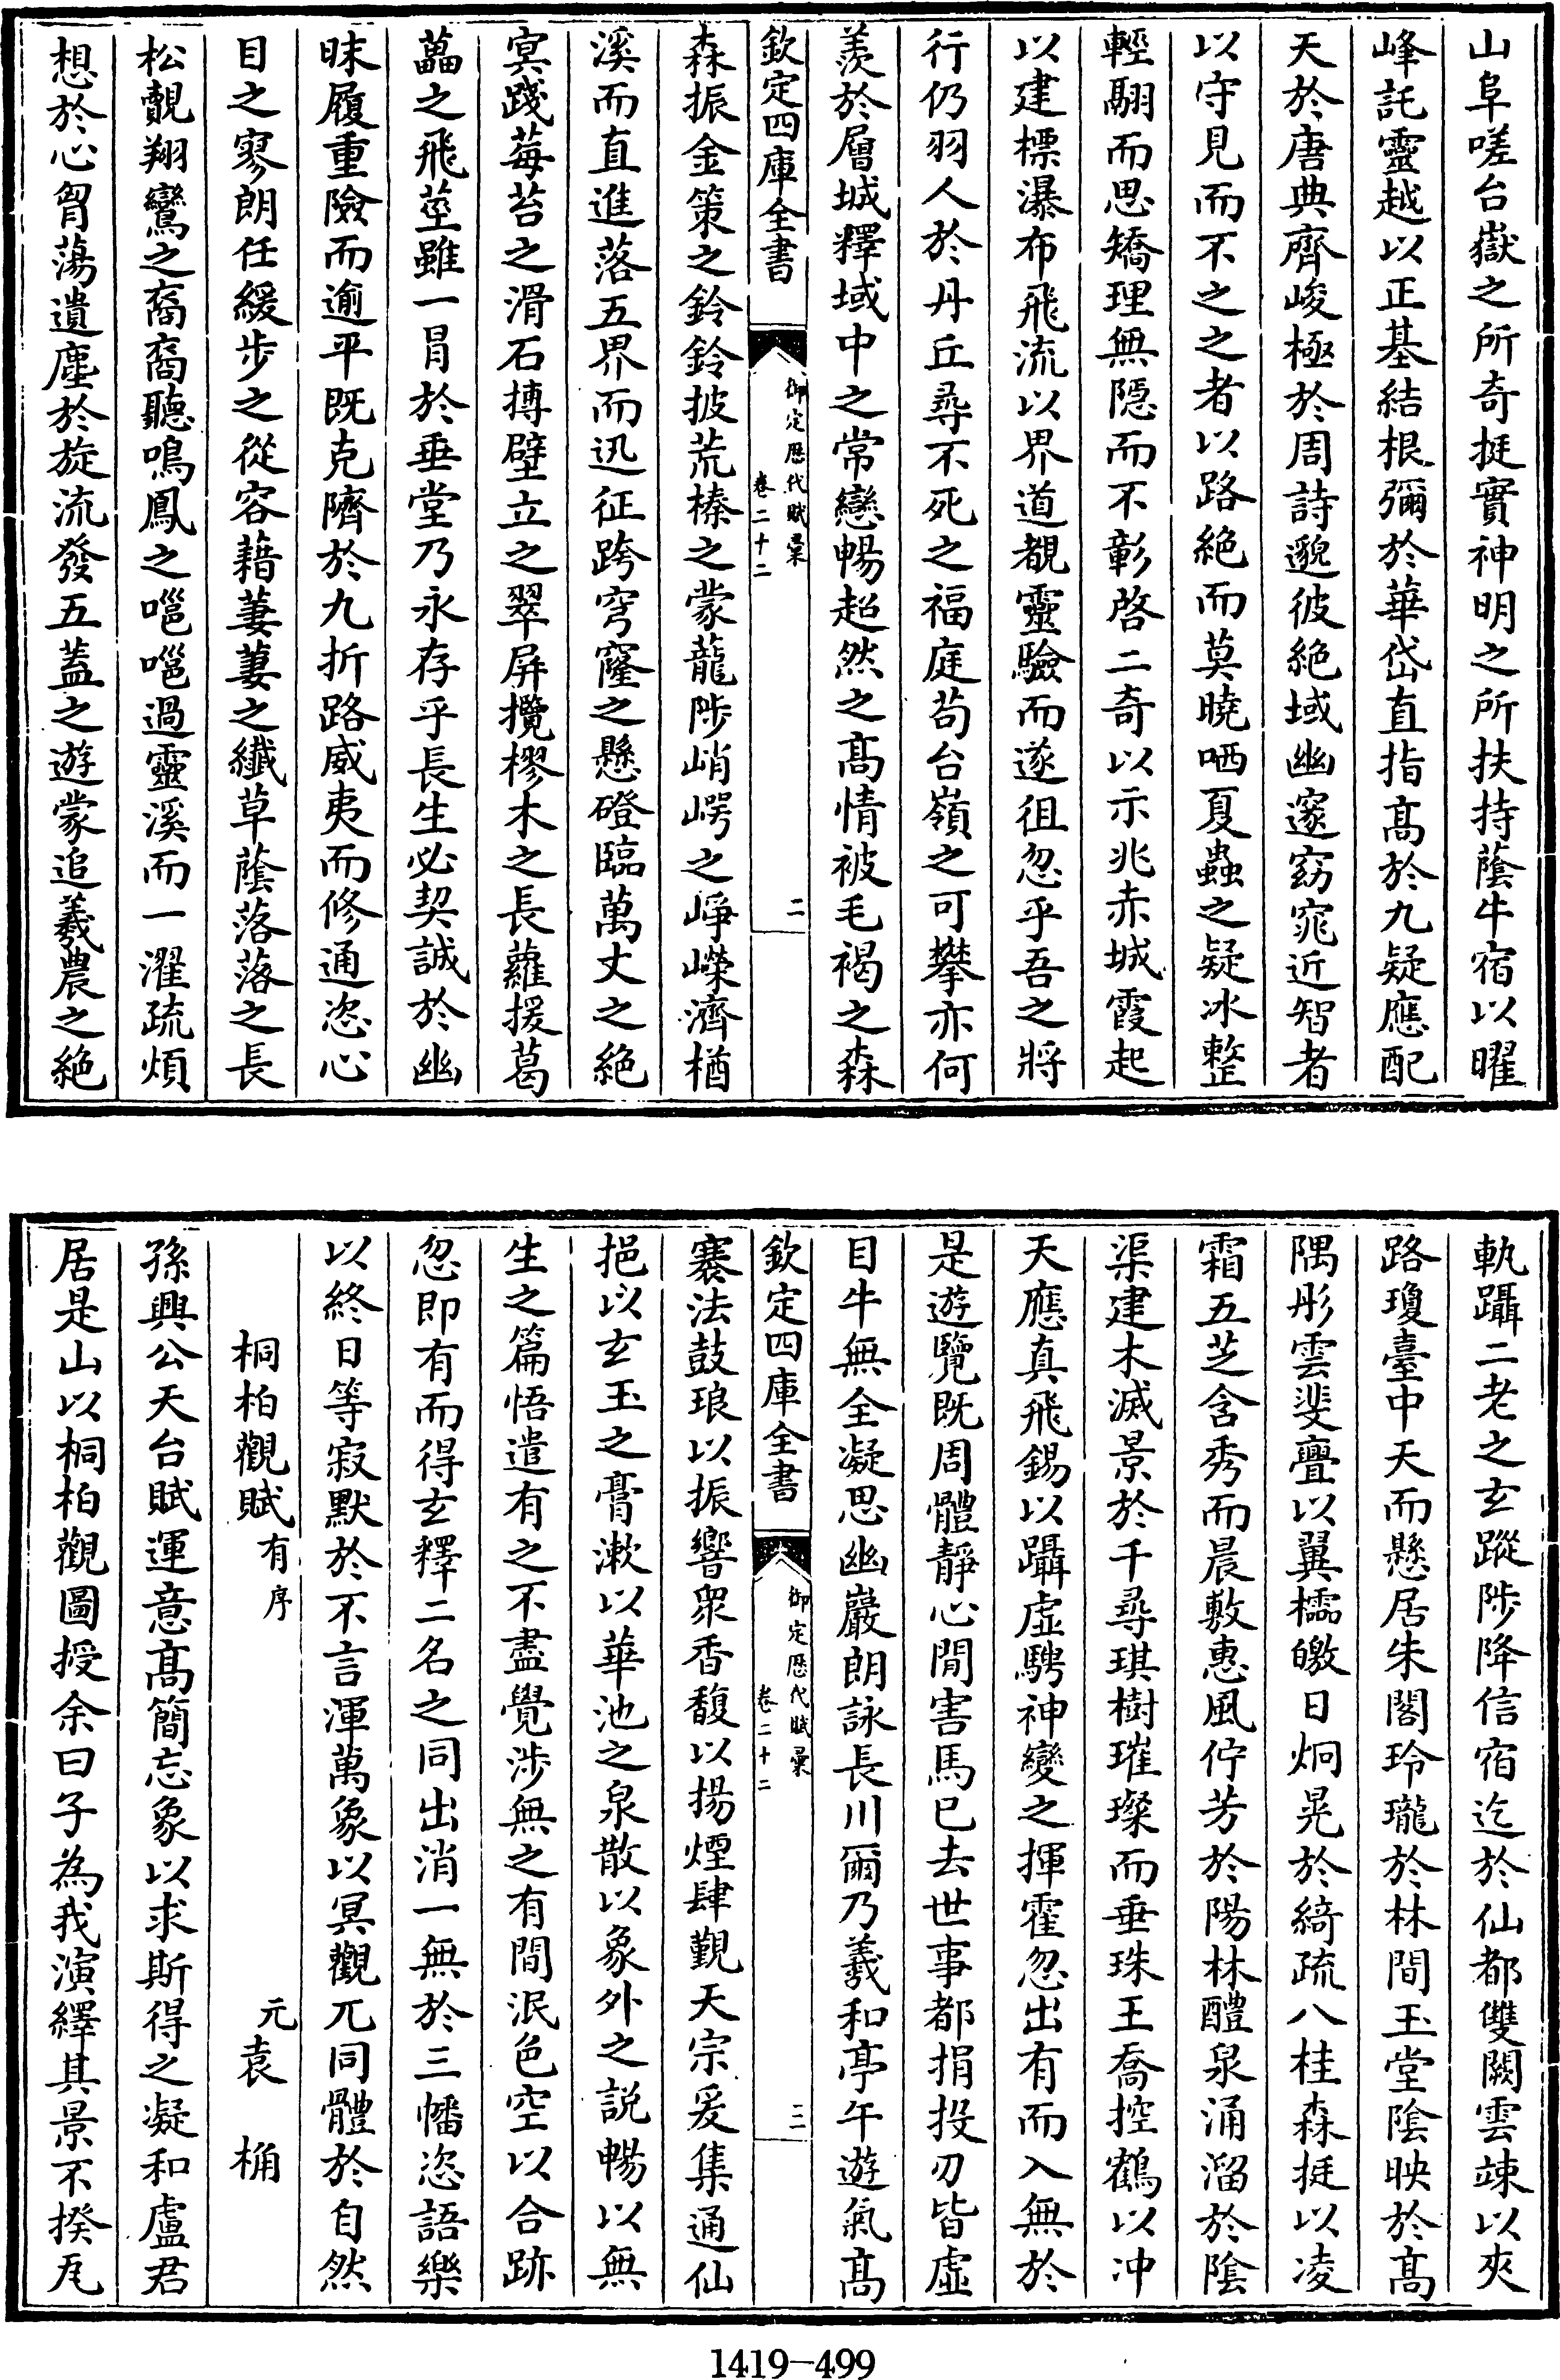 山阜嗟台嶽之所奇挺實神明之所扶持蔭牛宿以曜
峰託靈越以正基結根彌於華岱直指髙於九疑應配
天於唐典齊峻極於周詩邈彼絶域幽邃窈窕近智者
以守見而不之之者以路絶而莫曉哂夏蟲之疑冰整
輕翮而思矯理無隱而不彰啓二奇以示兆赤城霞起
以建標瀑布飛流以界道覩靈驗而遂徂忽乎吾之將
行仍羽人於丹丘尋不死之福庭苟台嶺之可攀亦何
羨於層城釋域中之常戀暢超然之髙情被毛褐之森
欽定四庫全書
御定歴代賦彙
卷二十二
二
森振金策之鈴鈴披荒榛之蒙龍陟峭崿之崢嶸濟楢
溪而直進落五界而迅征跨穹窿之懸磴臨萬丈之絶
㝠踐莓苔之滑石搏壁立之翠屏攬樛木之長蘿援葛
藟之飛莖雖一冒於垂堂乃永存乎長生必契誠於幽
昧履重險而逾平既克隮於九折路威夷而修通恣心
目之寥朗任緩步之從容藉萋萋之纎草蔭落落之長
松覿翔鸞之裔裔聽鳴鳳之嗈嗈過靈溪而一濯疏煩
想於心胷蕩遺塵於旋流發五蓋之遊蒙追羲農之絶
軌躡二老之玄蹤陟降信宿迄於仙都雙闕雲竦以夾
路瓊臺中天而懸居朱閣玲瓏於林間玉堂陰映於髙
隅彤雲斐亹以翼櫺皦日炯晃於綺疏八桂森挺以凌
霜五芝含秀而晨敷惠風佇芳於陽林醴泉涌溜於陰
渠建木滅景於千尋琪樹璀璨而垂珠王喬控鶴以冲
天應真飛錫以躡虛騁神變之揮霍忽出有而入無於
是遊覽既周體靜心閒害馬已去世事都捐投刃皆虛
目牛無全凝思幽巖朗詠長川爾乃羲和亭午遊氣髙
欽定四庫全書
御定歴代賦彙
卷二十二
三
褰法鼓琅以振響衆香馥以揚煙肆覲天宗爰集通仙
挹以玄玉之膏漱以華池之泉散以象外之説暢以無
生之篇悟遣有之不盡覺涉無之有間泯色空以合跡
忽即有而得玄釋二名之同出消一無於三幡恣語樂
以終日等寂默於不言渾萬象以冥觀兀同體於自然
桐柏觀賦有序　元袁桷
孫興公天台賦運意髙簡忘象以求斯得之凝和盧君
居是山以桐柏觀圖授余曰子為我演繹其景不揆尨
1419-499